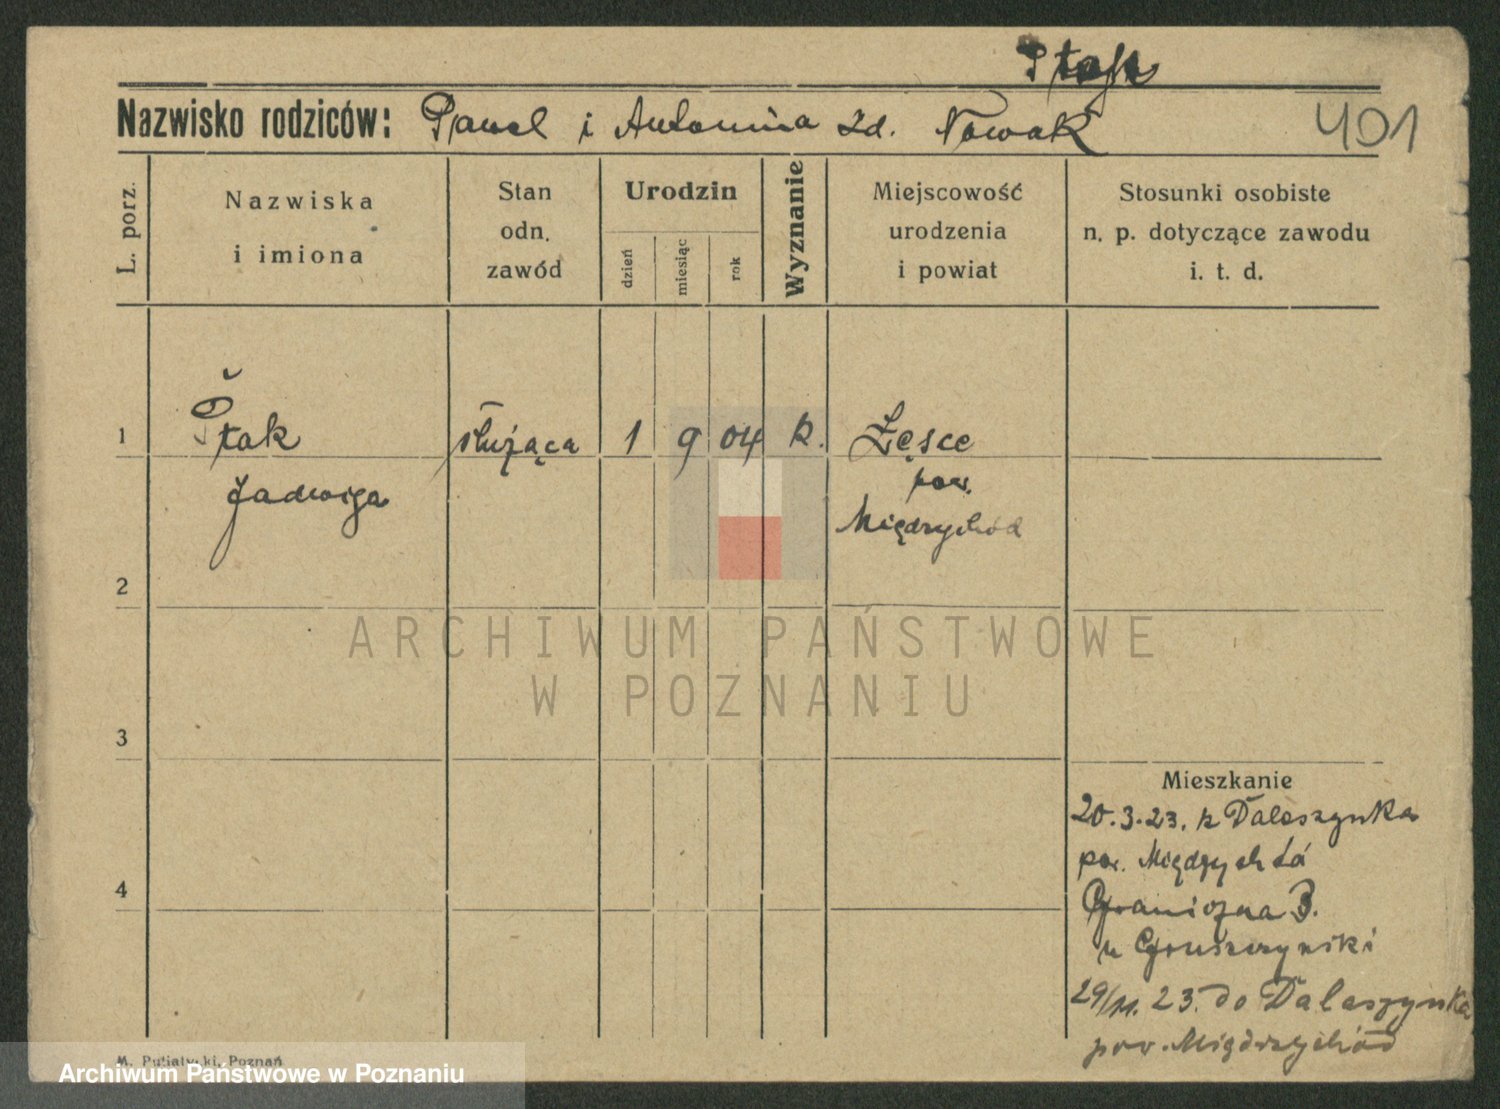 Ptak
Nazwisko rodziców: Paweł i Antonina zd. Nowak
401
L. porz.
Nazwiska
i imiona
Stan
odn.
zawód
Urodzin
dzień
miesiąc
rok
Wyznanie
Miejscowość
urodzenia
i powiat
Stosunki osobiste
n. p. dotyczące zawodu
i. t. d.
1
Ptak
służąca
1
9
04
k.
Łęsce
Jadwiga
pow.
Międzychód
2
ARCHIWUM PAŃSTWOWE
W POZNANIU
3
Mieszkanie
20.3.23. z Daleszynka
pow. Międzychód
4
Graniczna 3.
u Gruszczyński
29/11. 23. do Daleszynka
pow. Międzychód
M. Putiatycki, Poznań
Archiwum Państwowe w Poznaniu